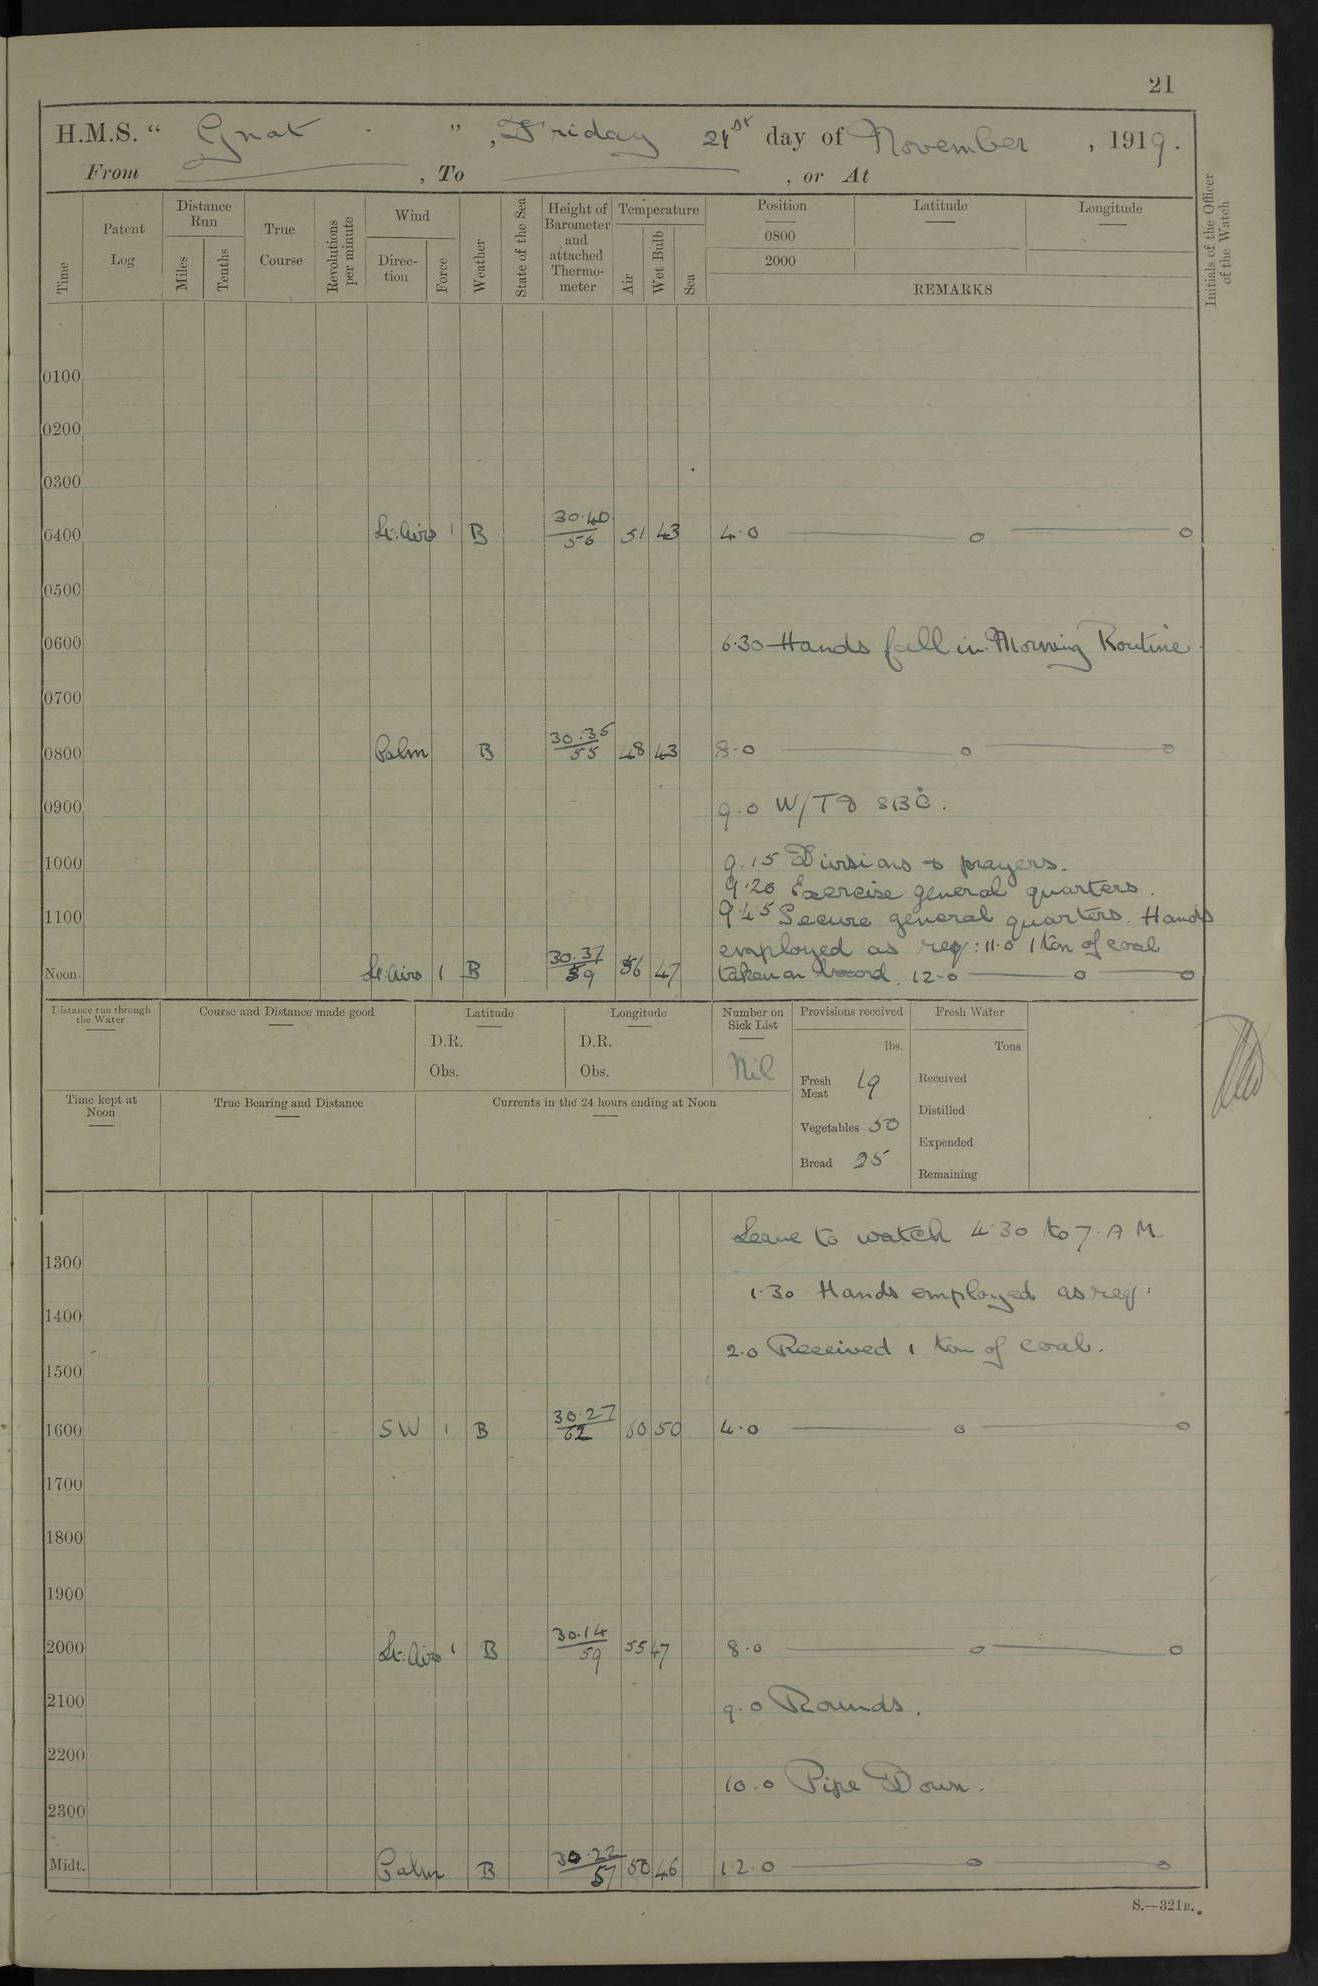 21
H.M.S. “ Gnat ” , Friday 21st day of November , 1919.
From , To , or At
Time
Patent Log
Distance Run
Miles
Tenths
True Course
Revolutions per minute
Wind
Direc-tion
Force
Weather
State of the Sea
Height of Barometer and attached Thermo-meter
Temperature
Air
Wet Bulb
Sea
Position
0800
2000
Latitude
Longitude
REMARKS
Initials of the Officer of the Watch
0100
0200
0300
0400 Lt. Airs 1 B 30.40 56 51 43 4.0 o o
0500
0600 6.30 Hands fall in. Morning Routine.
0700
0800 Calm B 30.35 55 48 43 8.0 o o
0900 9.0 W/T
1000 9.15 Divisions & prayers.
9.20 Exercise general quarters.
1100 9.45 Secure general quarters. Hands
employed as req: 11.0 1 ton of coal
Noon Lt. Airs 1 B 30.37 59 56 47 taken on board. 12.0 o o
Distance run through the Water
Course and Distance made good
Latitude
D.R.
Obs.
Longitude
D.R.
Obs.
Number on Sick List
Nil
Provisions received
lbs.
Fresh Meat 19
Vegetables 50
Bread 25
Fresh Water
Tons
Received
Distilled
Expended
Remaining
Time kept at Noon
True Bearing and Distance
Currents in the 24 hours ending at Noon
Leave to watch 4.30 to 7. A M.
1300
1.30 Hands employed as req:
1400
2.0 Received 1 ton of coal.
1500
1600 SW 1 B 30.27 62 60 50 4.0 o o
1700
1800
1900
2000 Lt. Airs 1 B 30.14 59 55 47 8.0 o o
2100 9.0 Rounds.
2200
10.0 Pipe Down.
2300
Midt. Calm B 30.22 57 50 46 12.0 o o
S.—321B.